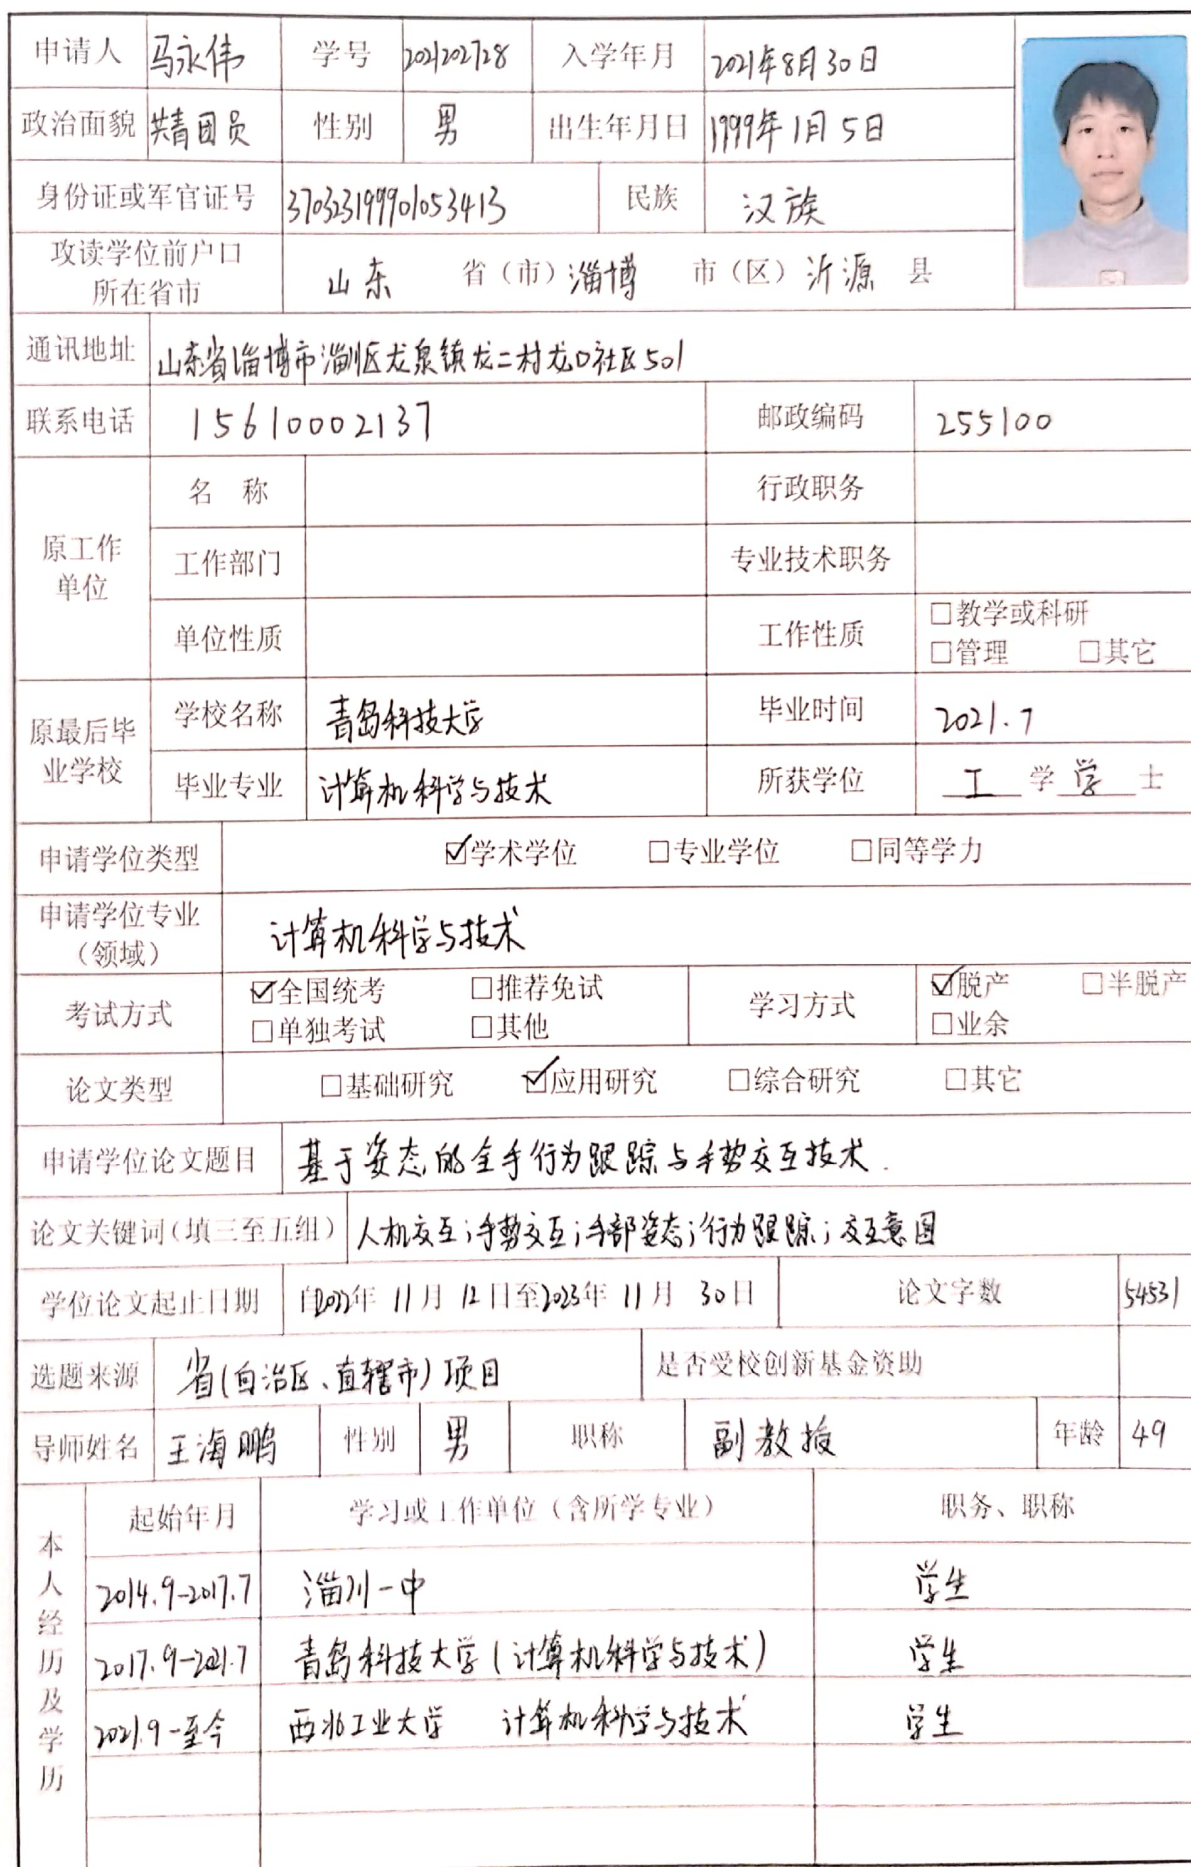 申请人 马永伟 学号 2021202728 入学年月 2021年8月30日
政治面貌 共青团员 性别 男 出生年月日 1999年1月5日
身份证或军官证号 370323199901053413 民族 汉族
攻读学位前户口
所在省市
山东 省（市）淄博 市（区）沂源 县
通讯地址 山东省淄博市淄川区龙泉镇龙二村龙口社区501
联系电话 15610002137 邮政编码 255100
原工作
单位
名 称 行政职务
工作部门 专业技术职务
单位性质 工作性质 □教学或科研
□管理 □其它
原最后毕
业学校
学校名称 青岛科技大学 毕业时间 2021.7
毕业专业 计算机科学与技术 所获学位 工 学 学 士
申请学位类型 ☑学术学位 □专业学位 □同等学力
申请学位专业
（领域）
计算机科学与技术
考试方式 ☑全国统考 □推荐免试
□单独考试 □其他
学习方式 ☑脱产 □半脱产
□业余
论文类型 □基础研究 ☑应用研究 □综合研究 □其它
申请学位论文题目 基于姿态的全手行为跟踪与手势交互技术.
论文关键词（填三至五组） 人机交互；手势交互；手部姿态；行为跟踪；交互意图
学位论文起止日期 自2022年 11月 12日至2023年 11月 30日 论文字数 54531
选题来源 省(自治区、直辖市)项目 是否受校创新基金资助
导师姓名 王海鹏 性别 男 职称 副教授 年龄 49
本人经历及学历
起始年月 学习或工作单位（含所学专业） 职务、职称
2014.9-2017.7 淄川一中 学生
2017.9-2021.7 青岛科技大学(计算机科学与技术) 学生
2021.9-至今 西北工业大学 计算机科学与技术 学生